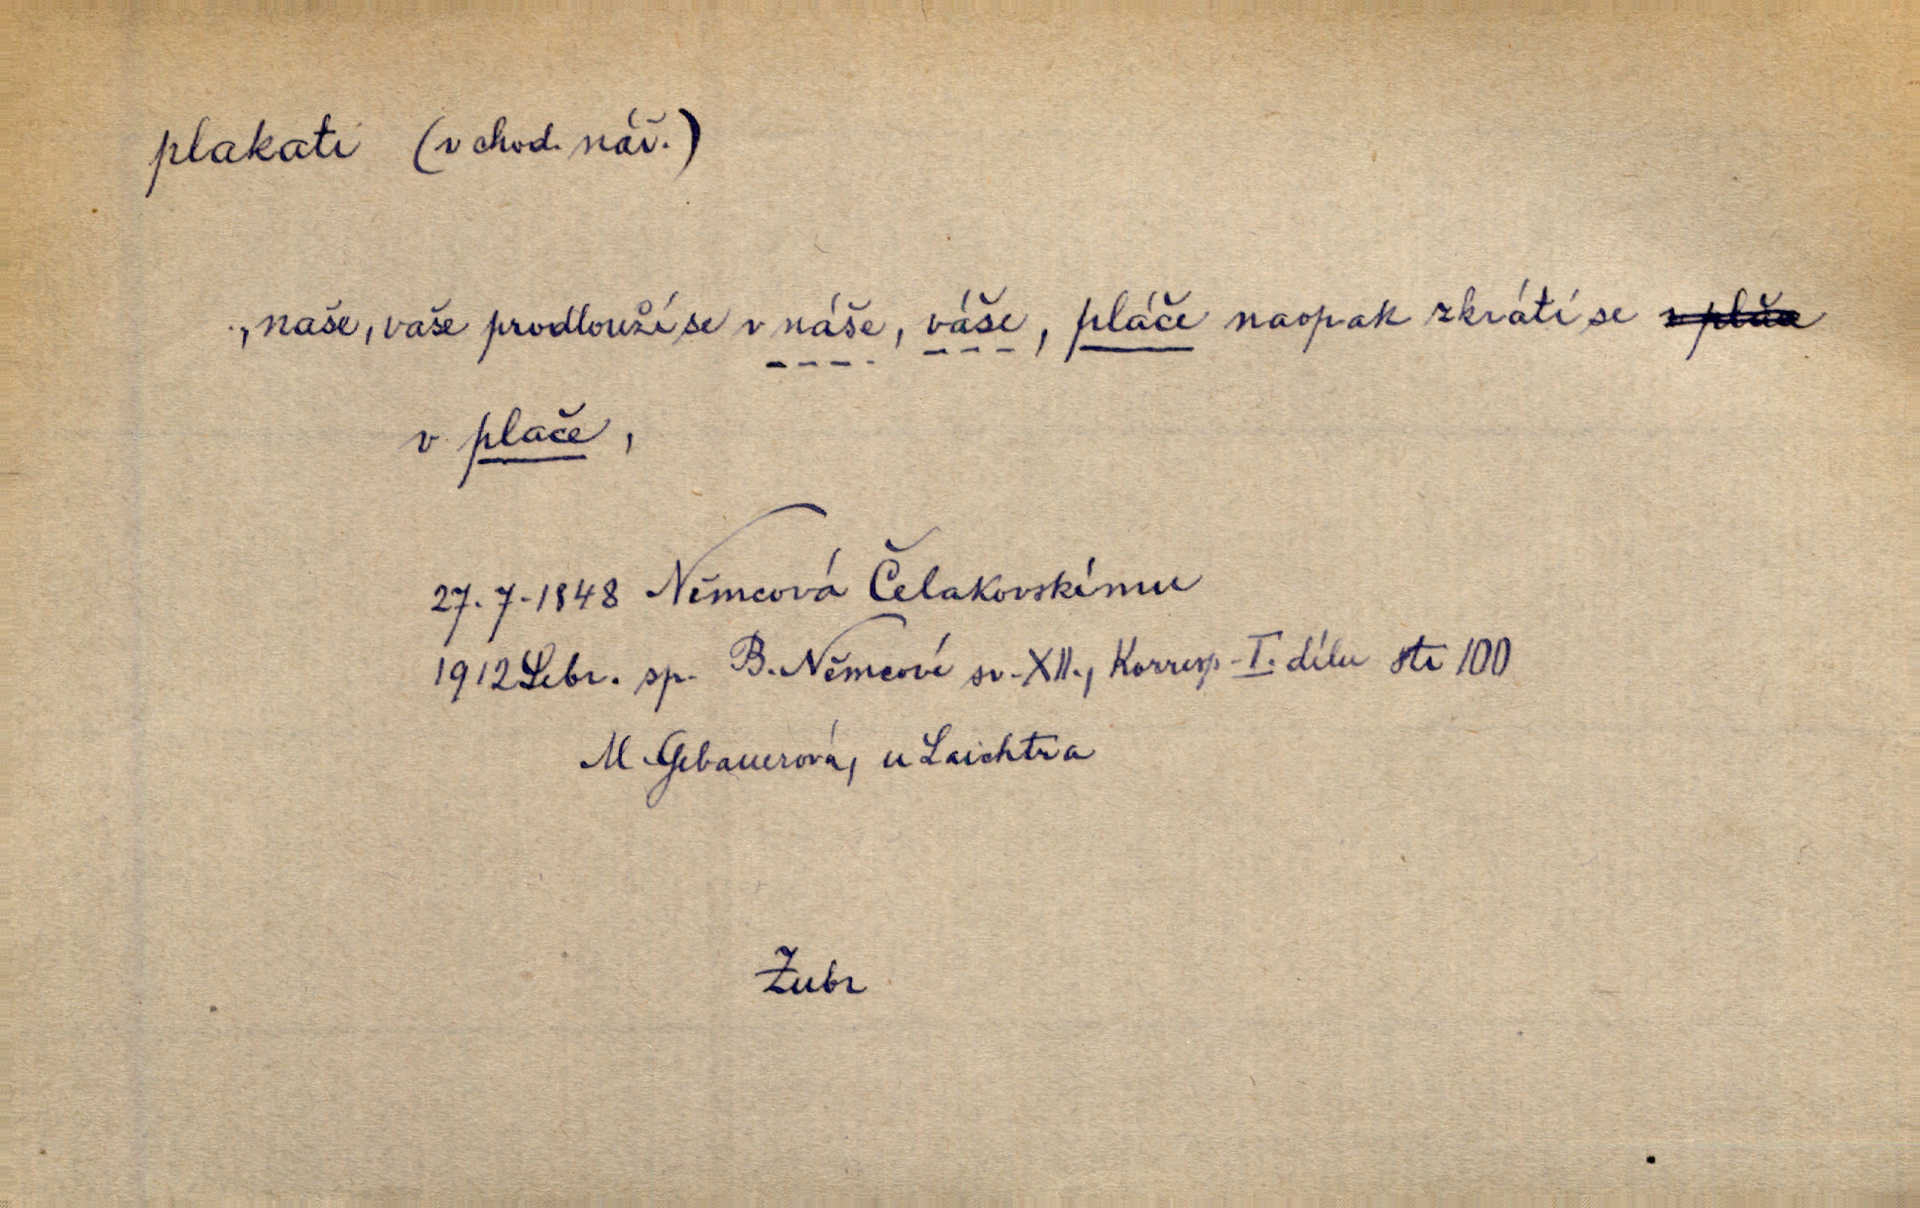 plakati (v chod. nář.)
„naše, vaše prodlouží se v náše, váše, pláče naopak zkrátí se
v plače,
27.7.1848 Němcová Čelakovskímu
1912 Sebr. sp. B. Němcové sv. XII., Korresp. I. dílu str 100
M. Gebauerová, u Laichtra
Zubr